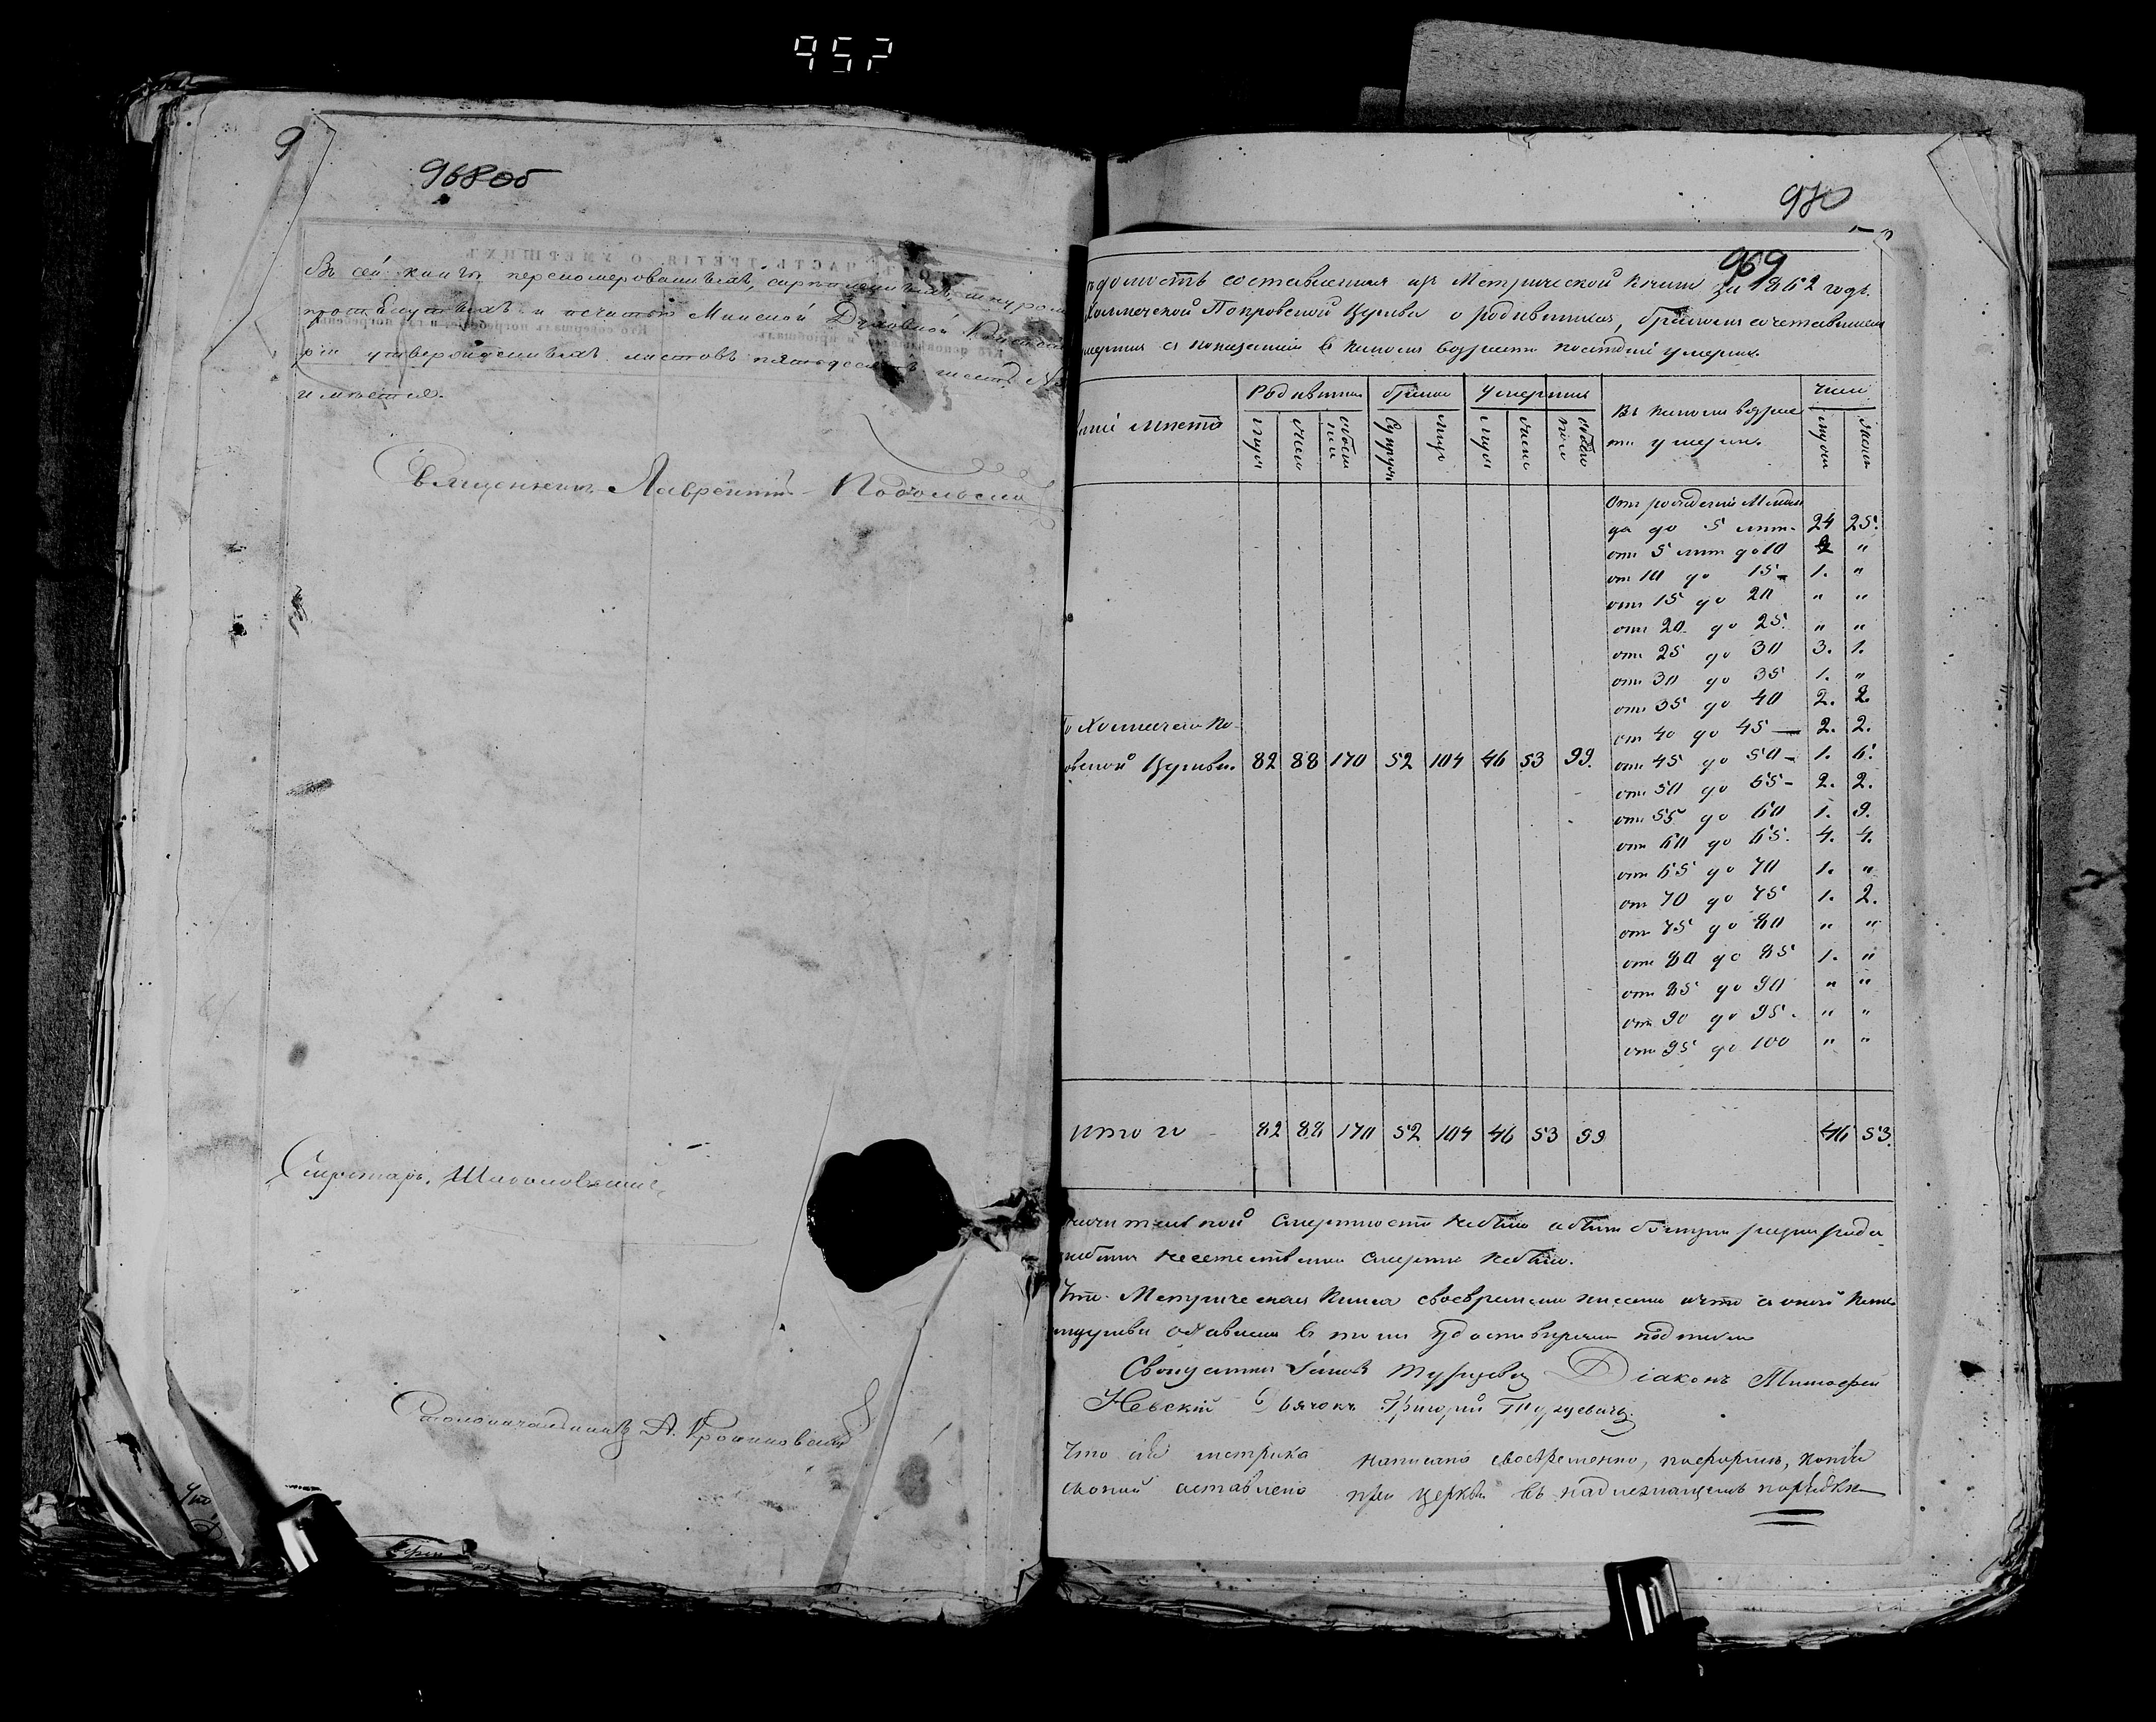 952
9
968об
Въ сей книгѣ перенумерованныхъ, скрѣпленныхъ, шнуром
и печатью Минской Духовной
утвержденныхъ листовъ пятьдесятъ шесть
имѣется.
Священникъ Лаврентій Подольскі
Секретарь
Столоначальникъ А.
970
969
домость составленная изъ Метрической Книги за 1862 годъ.
Холмечской Покровской Церкви о родившихся, бракомъ сочетавшихся
умершихъ съ показаніемъ въ какомъ возрастѣ послѣдніе умерли.
Родившихся бракомъ Умершихъ Число
мѣста мужес женс обоего пола Супруж лицъ мужес женс обоего пола Въ какомъ возрас
тѣ умерли. мужес женс
Отъ рожденія Младен
ца до 5 лѣтъ. 24 25.
отъ 5 лѣтъ до 10 "
от 10 до 15 1. "
отъ 15 до 20 " "
отъ 20 до 25. " "
отъ 25 до 30 3. 1.
отъ 30 до 35 1. "
отъ 35 до 40 2. 2.
Холмечско По-
от 40 до 45 — 2. 2.
овской Церкви. 82 88 170 52 104 46 53 99. отъ 45 до 50 - 1. 6.
отъ 50 до 55 - 2. 2.
отъ 55 до 60 1. 9.
отъ 60 до 65. 4. 4.
отъ 65 до 70 1. "
от 70 до 75 1. 2.
отъ 75 до 80 " "
отъ 80 до 85 1. "
отъ 85 до 90 " "
отъ 90 до 95. " "
отъ 95 до 100 " "
Итого 82 88 170 52 104 46 53 99 46 53.
Смертности небыло
неестественной смерти небыло.
Что Метрическая Книга своевременно писана и что съ оной копія
церкви оставлена въ томъ удостовѣряемъ подписомъ
Священникъ Діаконъ Тимофей
Невскій Дьячокъ Григорій Турцевичъ.
Что сія метрика написана своевременно, по формѣ, копія
съ оной оставлена при церкви въ надлежащемъ порядкѣ